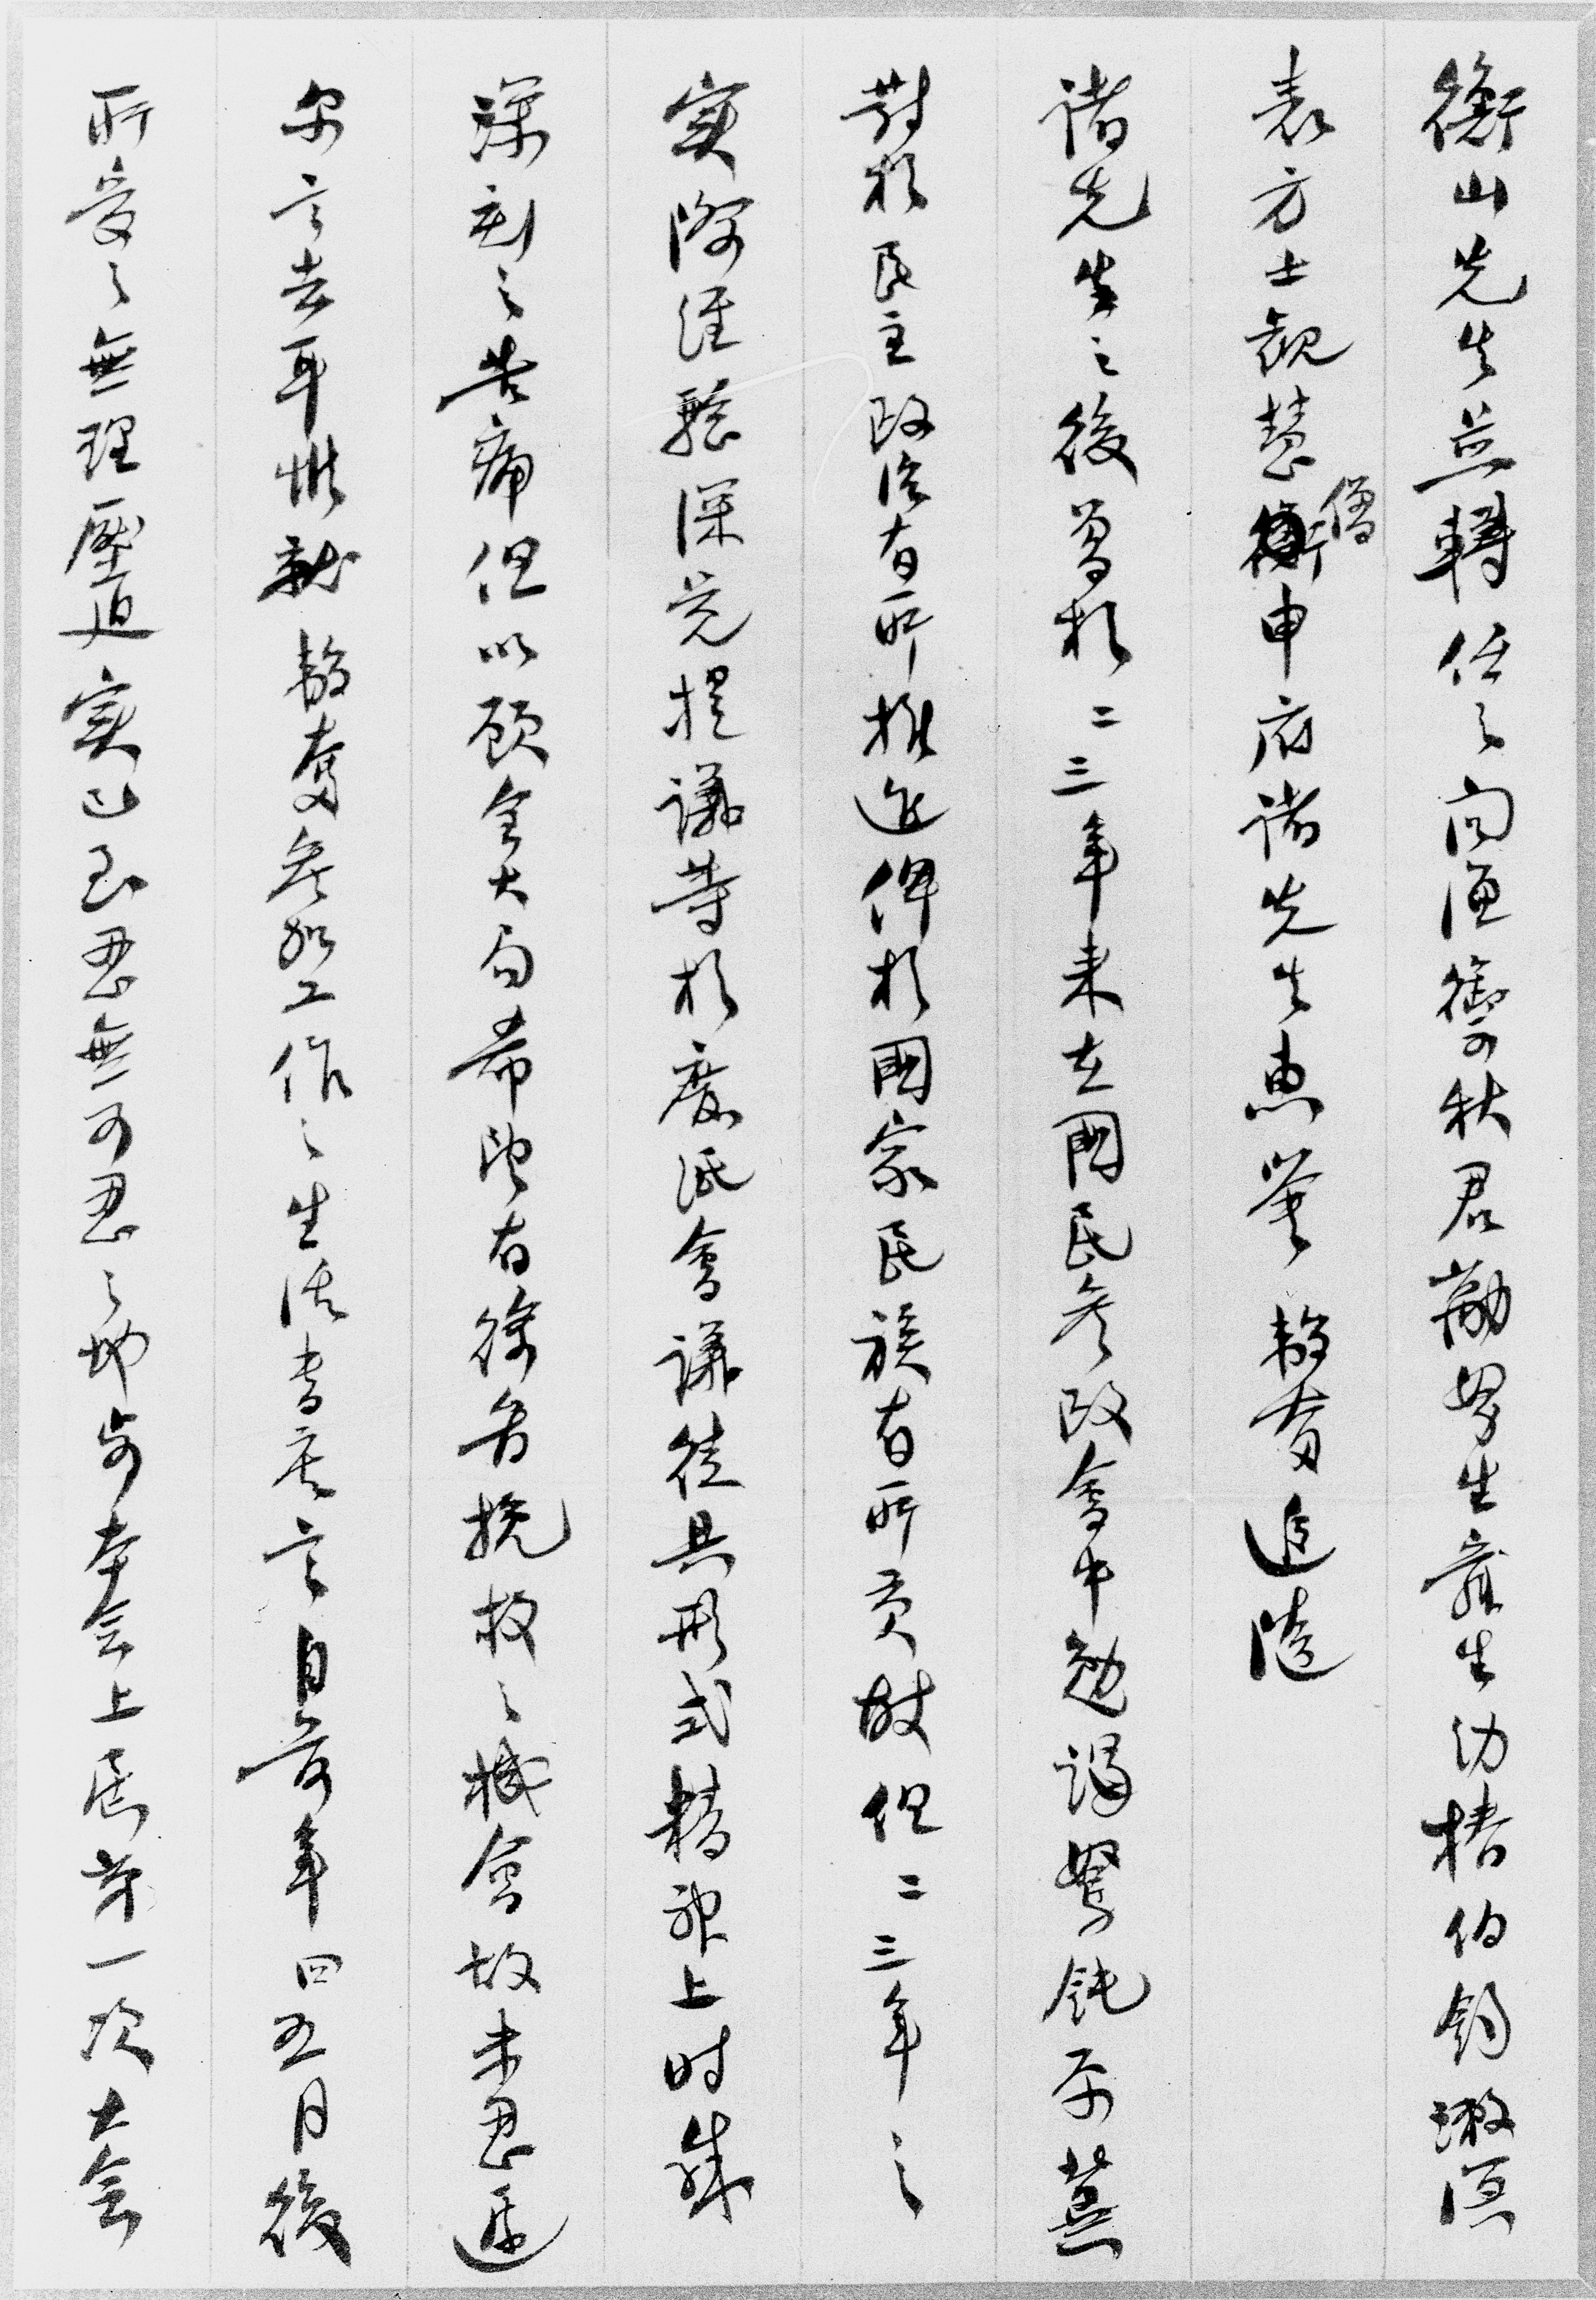 衡山先生並轉任之問漁御秋君勱努生舜生幼椿伯鈞漱溟
表方士觀慧僧申府諸先生惠鑒韜奮追隨
諸先生之後曾於二三年來在國民參政會中勉竭駑鈍原冀
對於民主政治有所推進俾於國家民族有所貢獻但二三年之
實際經驗深覺提議等於廢紙會議徒具形式精神上時感
深刻之苦痛但以顧全大局希望有徐圖挽救之機會故未忍遽
爾言去耳惟就韜奮參加工作之生活書店言自前年四五月後
所受之無理壓迫實已至忍無可忍之地步本會上屆第一次大會